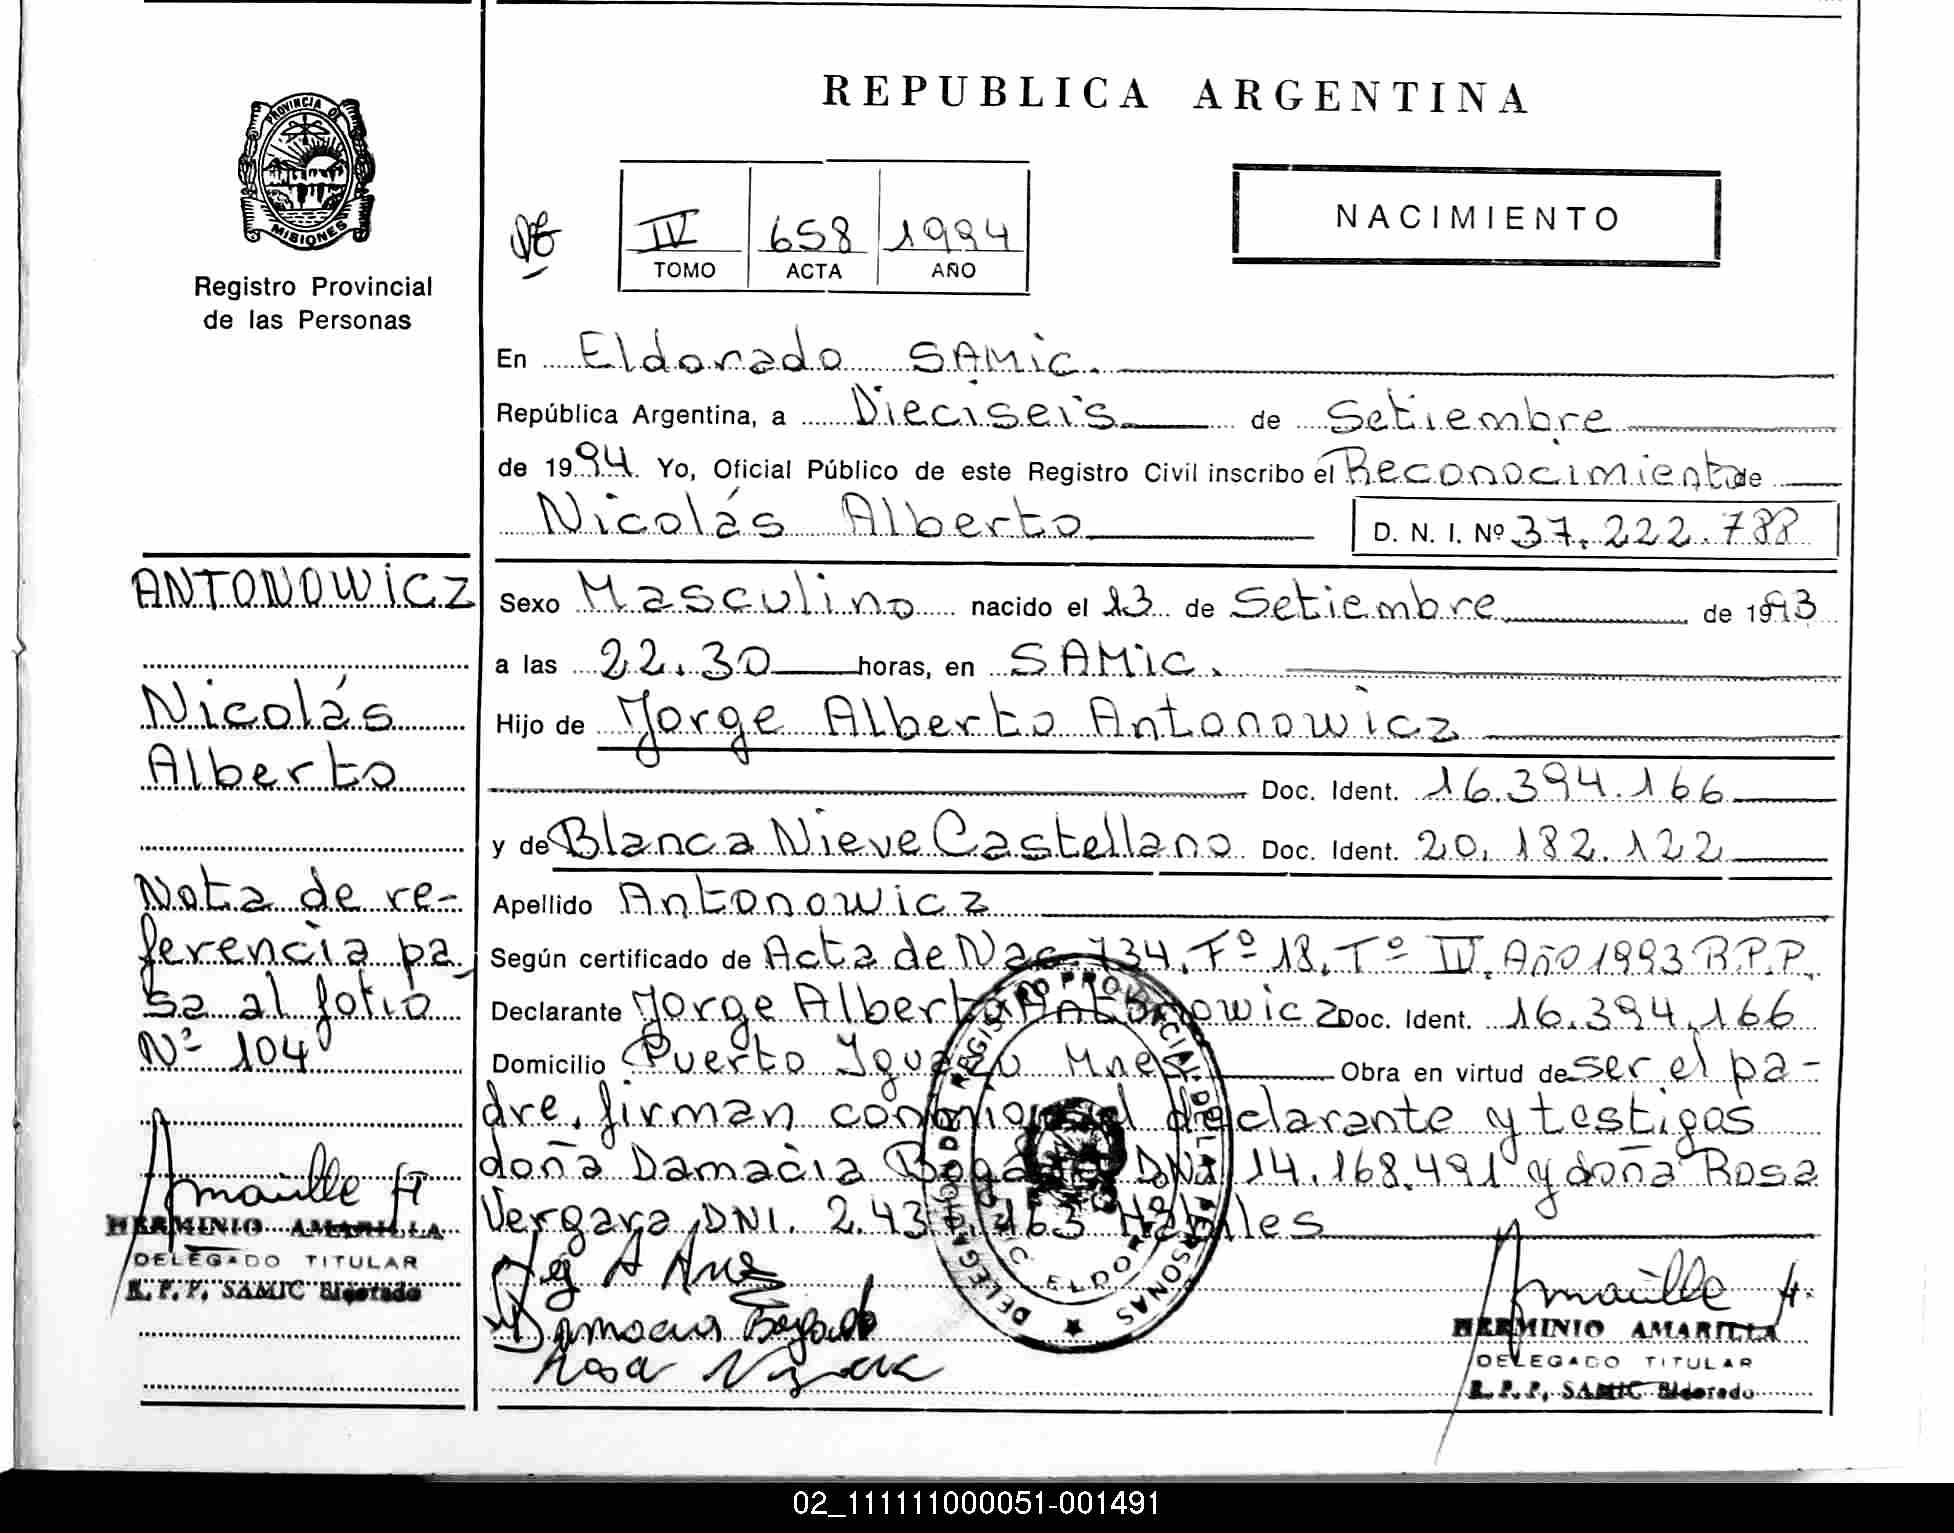 REPUBLICA ARGENTINA
PROVINCIA DE
MISIONES
Registro Provincial
de las Personas
IV 658 1994
TOMO ACTA AÑO
NACIMIENTO
En Eldorado SAMiC.
República Argentina, a Dieciseis de Setiembre
de 1994 Yo, Oficial Público de este Registro Civil inscribo el Reconocimiento de
Nicolás Alberto D. N. I. Nº 37.222.788
Sexo Masculino nacido el 13 de Setiembre de 1993
a las 22.30 horas, en SAMiC.
Hijo de Jorge Alberto Antonowicz
Doc. Ident. 16.394.166
y de Blanca Nieve Castellano Doc. Ident. 20.182.122
Apellido Antonowicz
Según certificado de Acta de Nac. 734. Fº 18. Tº IV. Año 1993 R.P.P.
Declarante Jorge Alberto Antonowicz Doc. Ident. 16.394.166
Domicilio Puerto Iguazu Mnes Obra en virtud de ser el pa-
dre, firman conmigo el declarante y testigos
doña Damacia DNI 14.168.491 y doña Rosa
Vergara DNI. Habiles
ANTONOWiCZ
Nicolás
Alberto
Nota de re-
ferencia pa-
sa al folio
Nº 104
HERMINIO AMARILLA
DELEGADO TITULAR
R. P. P. SAMIC Eldorado
REGISTRO PROVINCIAL DE LAS PERSONAS
HERMINIO AMARILLA
DELEGADO TITULAR
R. P. P. SAMIC Eldorado
02_111111000051-001491